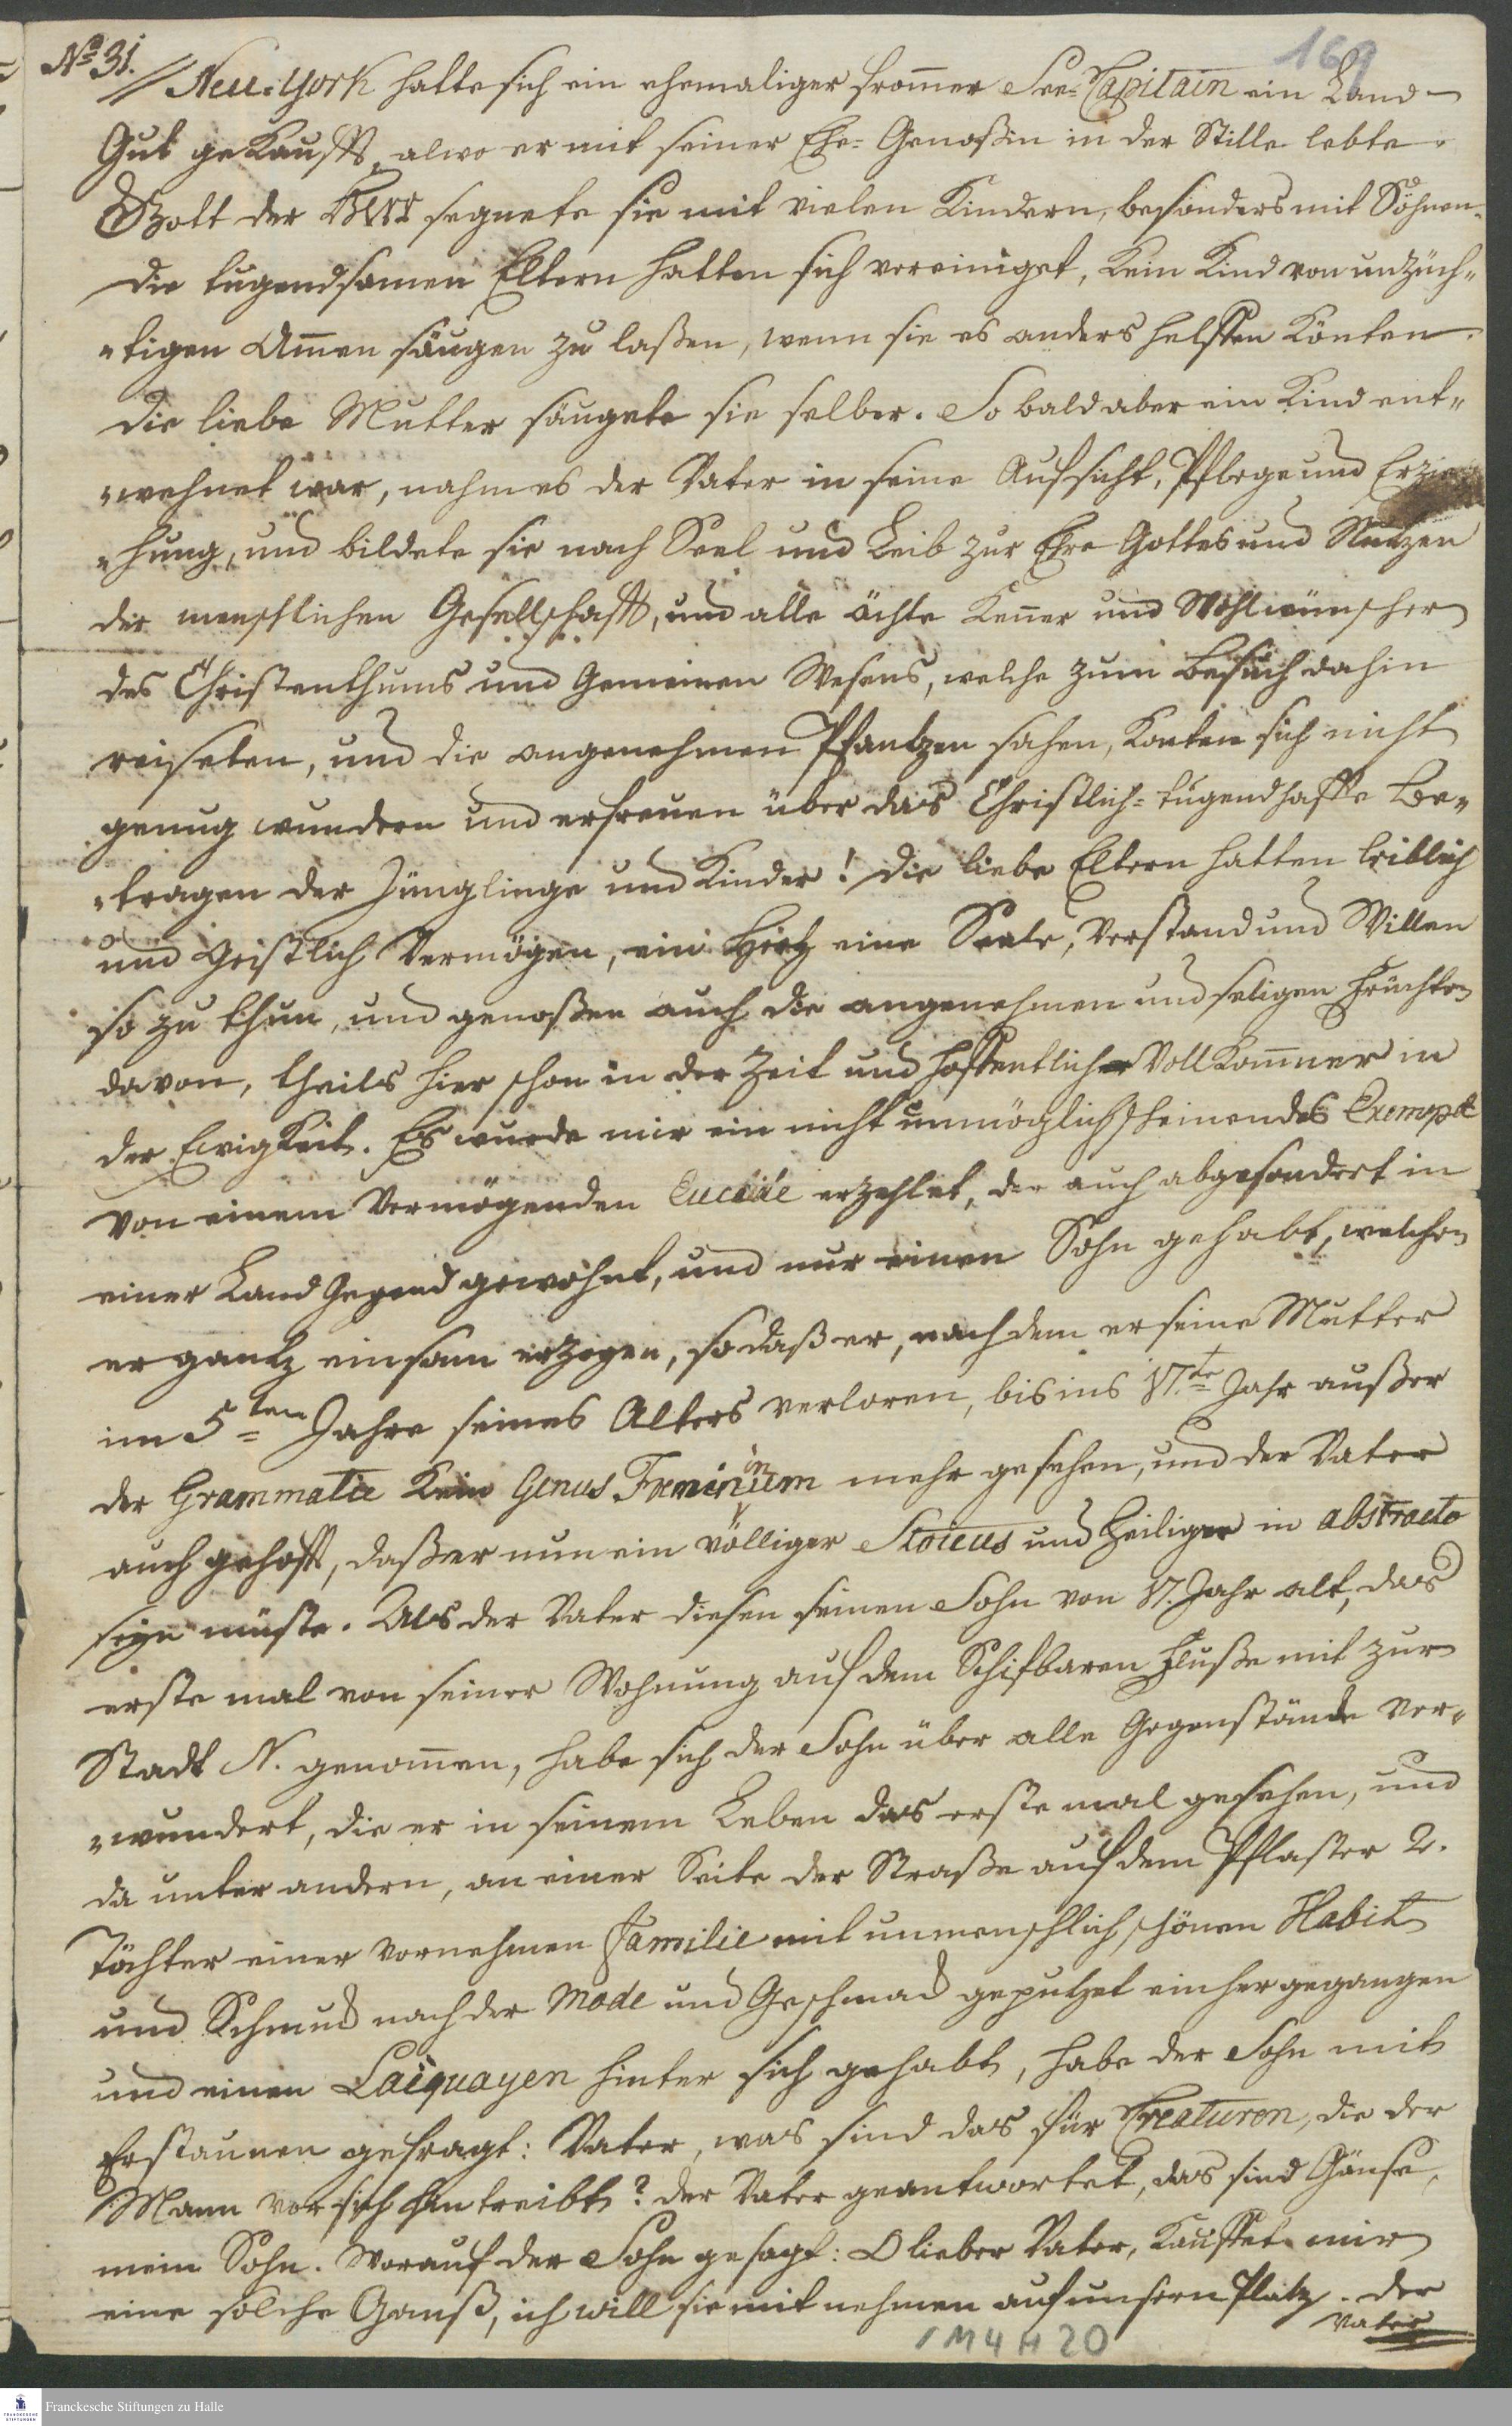 No 31.
169
// Neu-York hatte sich ein ehemaliger from̄er See-Capitain ein Land-
Gut gekaufft, alwo er mit seiner Ehe-Genoßin in der Stille lebte.
Gott der HErr segnete sie mit vielen Kindern, besonders mit Söhnen.
Die tugendsamen Eltern hatten sich vereiniget, kein Kind von unzüch„
„tigen Am̄en säugen zu laßen, wenn sie es anders helffen könten.
Die liebe Mutter säugete sie selber. So bald aber ein Kind ent„
„wehnet war, nahm es der Vater in seine Aufsicht, Pflege und Erzie„
„hung, und bildete sie nach Seel und Leib zur Ehre Gottes und Nutzen
der menschlichen Gesellschafft, und alle ächte Keñer und Wohlwünscher
des Christenthums und Gemeinen Wesens, welche zum Besuch dahin
reiseten, und die angenehmen Pflantzen sahen, konten sich nicht
genug wundern und erfreuen über das Christlich-tugendhaffte Be„
„tragen der Jünglinge und Kinder! Die liebe Eltern hatten leiblich
und Geistlich Vermögen, ein Hertz eine Seele, Verstand und Willen
so zu thun, und genoßen auch die angenehmen und seligen Früchten
davon, theils hier schon in der Zeit und hoffentlicher Vollkom̄ner in
der Ewigkeit. Es wurde mir ein nicht unmöglich scheinendes Exempel
von einem Vermögenden erzehlet, der auch abgesondert in
einer Land Gegend gewohnt, und nur einen Sohn gehabt, welchen
er gantz einsam erzogen, so daß er, nach dem er seine Mutter
im 5ten Jahre seines Alters verloren, bis ins 17.te Jahr außer
der Grammatic kein Genus Fœmininum mehr gesehen, und der Vater
auch gehofft, daß er nun ein völliger Stoicus und Heiliger in abstracto
seyn müste. Als der Vater diesen seinen Sohn von 17. Jahr alt, das
erste mal von seiner Wohnung auf dem Schifbaren Fluße mit zur
Stadt N. genom̄en, habe sich der Sohn über alle Gegenstände ver„
„wundert, die er in seinem Leben das erste mal gesehen, und
da unter andern, an einer Seite der Straße auf dem Pflaster 2.
Töchter einer vornehmen Familie mit unmenschlich schönen Habit
und Schmuck nach der Mode und Geschmack geputzet einher gegangen
und einen Lacquayen hinter sich gehabt, habe der Sohn mit
Erstaunen gefragt: Vater, was sind das für Creaturen, die der
Mann vor sich hin treibt? Der Vater geantwortet, das sind Gänse,
mein Sohn. Worauf der Sohn gesagt: O lieber Vater, kauffet mir
eine solche Ganß, ich will sie mit nehmen auf unsern Platz. Der
Vater
1 M 4 H 20
Franckesche Stiftungen zu Halle